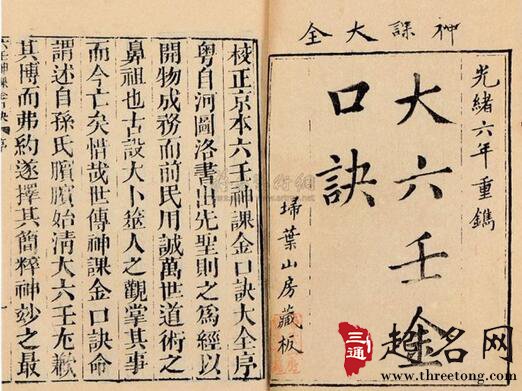 神課大全
光緒六年重鐫
大六壬金
口訣
埽葉山房藏板
校正京本六壬神課金口訣大全序
粵自河圖洛書出先聖則之為經以
開物成務而前民用誠萬世道術之
鼻祖也古設大卜筮人之觀掌其事
而今亡矣惜哉世傳神課金口訣命
謂述自孫氏臏臏始清大六壬尨歉
其博而弗約遂擇其簡粹神妙之最
三通
起名网
www.threetong.com